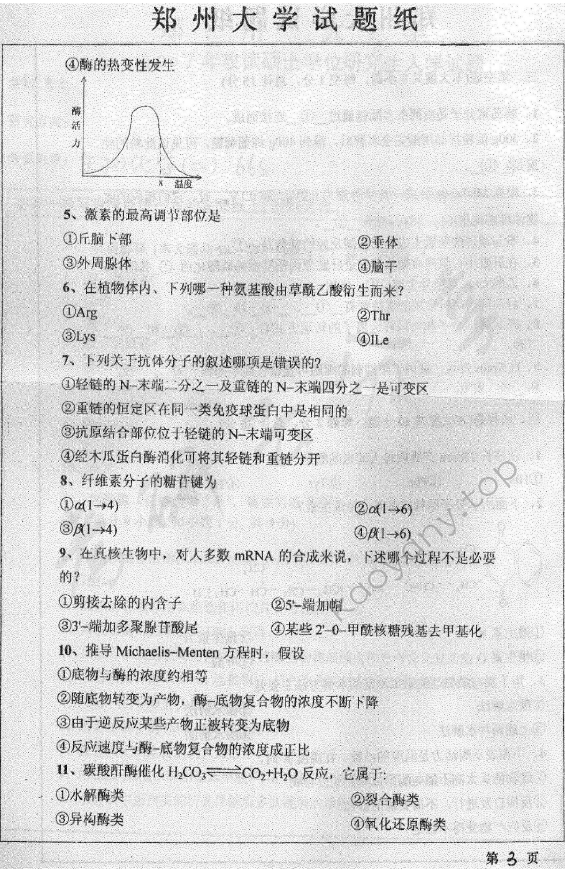 郑州大学试题纸
④酶的热变性发生
酶活力
x 温度
5、激素的最高调节部位是
①丘脑下部 ②垂体
③外周腺体 ④脑干
6、在植物体内、下列哪一种氨基酸由草酰乙酸衍生而来?
①Arg ②Thr
③Lys ④ILe
7、下列关于抗体分子的叙述哪项是错误的?
①轻链的 N-末端二分之一及重链的 N-末端四分之一是可变区
②重链的恒定区在同一类免疫球蛋白中是相同的
③抗原结合部位位于轻链的 N-末端可变区
④经木瓜蛋白酶消化可将其轻链和重链分开
8、纤维素分子的糖苷键为
①α(1→4) ②α(1→6)
③β(1→4) ④β(1→6)
9、在真核生物中，对大多数 mRNA 的合成来说，下述哪个过程不是必要
的?
①剪接去除的内含子 ②5'-端加帽
③3'-端加多聚腺苷酸尾 ④某些 2'-0-甲酰核糖残基去甲基化
10、推导 Michaelis-Menten 方程时，假设
①底物与酶的浓度约相等
②随底物转变为产物，酶-底物复合物的浓度不断下降
③由于逆反应某些产物正被转变为底物
④反应速度与酶-底物复合物的浓度成正比
11、碳酸酐酶催化 H₂CO₃⇌CO₂+H₂O 反应，它属于:
①水解酶类 ②裂合酶类
③异构酶类 ④氧化还原酶类
第 3 页
kaoyany.top